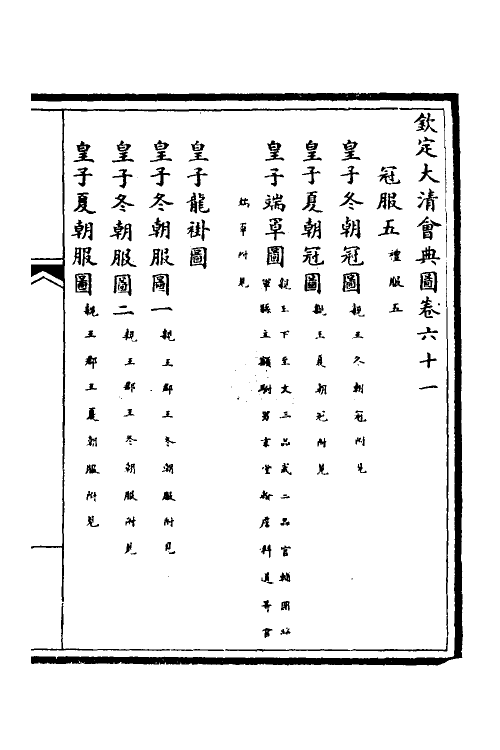 欽定大清會典圖卷六十一
冠服五禮服五
皇子冬朝冠圖親王冬朝冠附見
皇子夏朝冠圖親王夏朝冠附見
皇子端罩圖親王下至文三品武二品官輔國
軍縣主額駙男京堂翰詹科道等官
端罩附見
皇子龍褂圖
皇子冬朝服圖一親王郡王冬朝服附見
皇子冬朝服圖二親王郡王冬朝服附見
皇子夏朝服圖親王郡王夏朝服附見